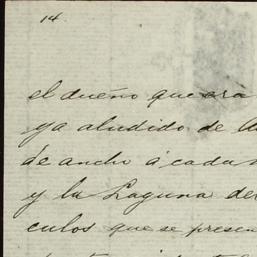 14.
el dueño que era
ya aludido de la
de ancho á cada
y la Laguna de
culos que se presen